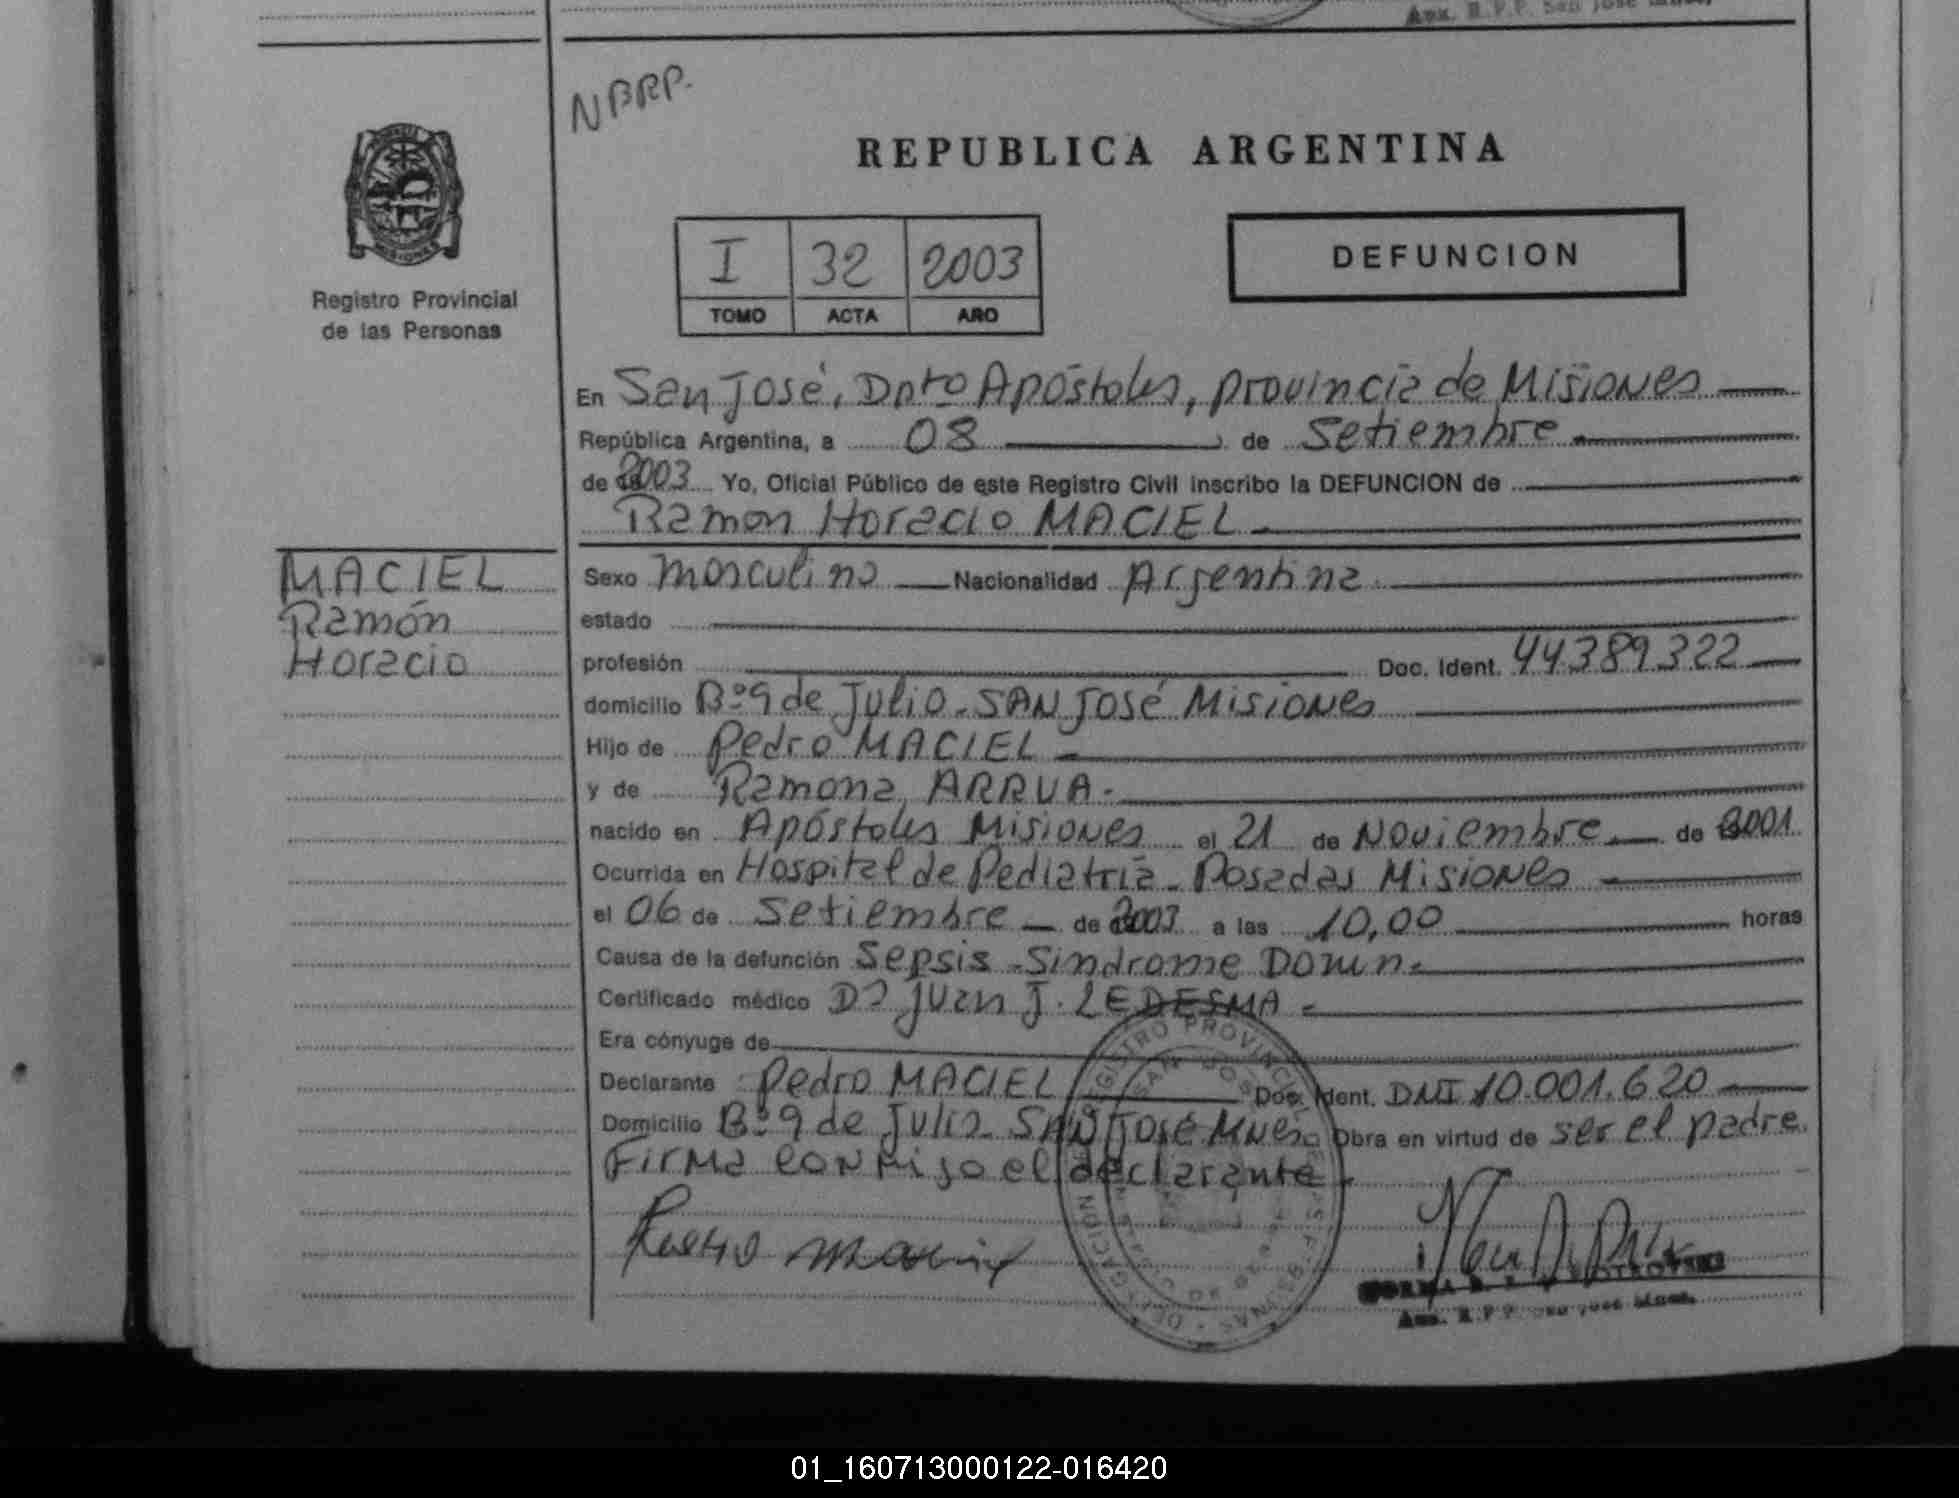 Aux. R.P.P. San José
NBRP.
REPUBLICA ARGENTINA
MISIONES
Registro Provincial
de las Personas
I 32 2003
TOMO ACTA AÑO
DEFUNCION
En San José, Dpto Apóstoles, provincia de Misiones
República Argentina, a 08 de Setiembre
de 2003 Yo, Oficial Público de este Registro Civil inscribo la DEFUNCION de
Ramon Horacio MACIEL
MACIEL
Ramón
Horacio
Sexo masculino Nacionalidad Argentina
estado
profesión Doc. Ident. 44389322
domicilio Bº 9 de Julio - SAN José Misiones
Hijo de Pedro MACIEL
y de Ramona ARRUA.
nacido en Apóstoles Misiones el 21 de Noviembre de 2001
Ocurrida en Hospital de Pediatría - Posadas Misiones
el 06 de Setiembre de 2003 a las 10,00 horas
Causa de la defunción Sepsis - Sindrome Down.
Certificado médico Dr Juan J. LEDESMA
Era cónyuge de
Declarante Pedro MACIEL Doc. Ident. DNI 10.001.620
Domicilio Bº 9 de Julio - SAN José Mnes. Obra en virtud de ser el padre.
Firma conmigo el declarante.
REGISTRO PROVINCIAL DE LAS PERSONAS
DELEGACION
SAN JOSE
NORMA
Aux. R.P.P. San José Mnes.
01_160713000122-016420